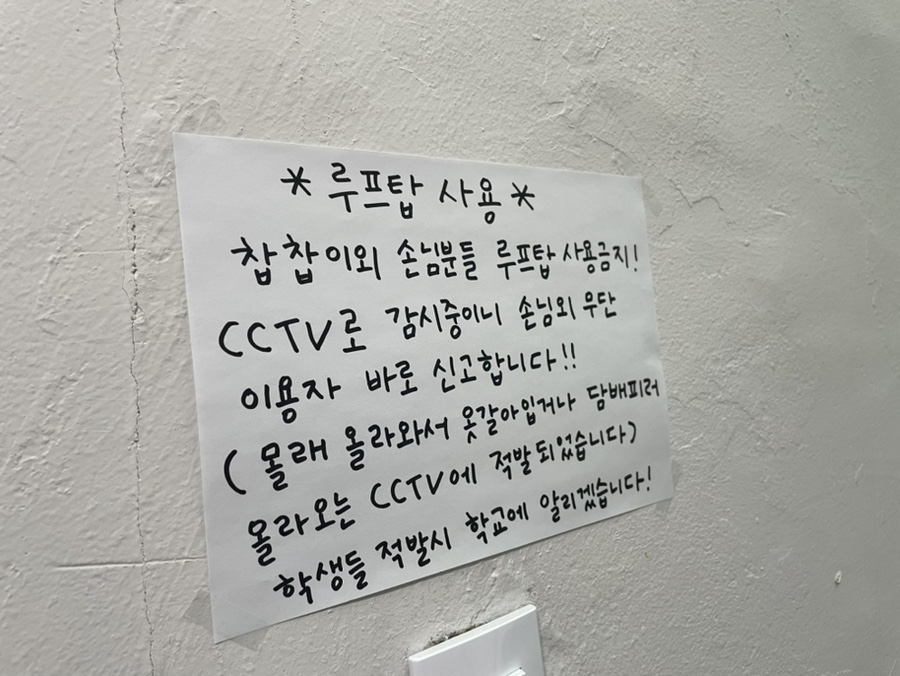 * 루프탑 사용 *
찹찹이외 손님분들 루프탑 사용금지!
CCTV로 감시중이니 손님외 무단
이용자 바로 신고합니다!!
( 몰래 올라와서 옷갈아입거나 담배피러
올라오는 CCTV에 적발되었습니다)
학생들 적발시 학교에 알리겠습니다!